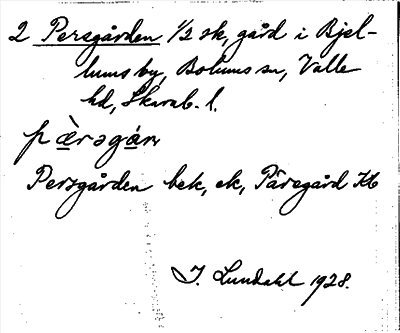 2 Persgården 1/2 sk, gård i Bjel-
lums by, Bolums sn, Valle
hd, Skarab. l.
pæ̀rsgán
Persgården bek, ek, Päregård Kb
J. Lundahl 1928.